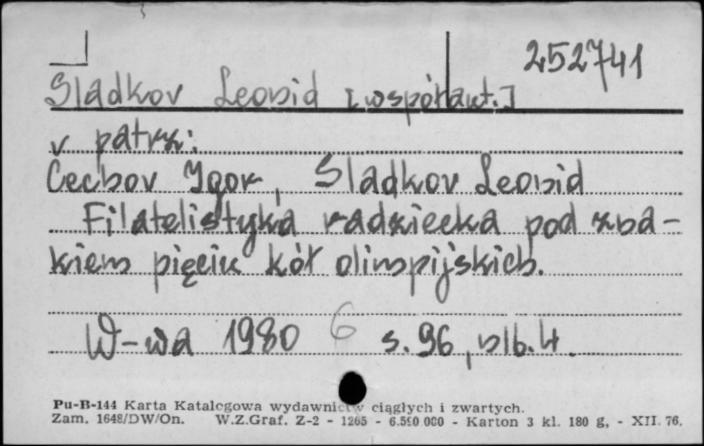 252741
Sladkov Leonid [współaut.]
v patrz:
Cechov Igor, Sladkov Leonid
Filatelistyka radziecka pod zna-
kiem pięciu kół olimpijskich.
W-wa 1980 6 s. 96, nlb. 4.
Pu-B-144 Karta Katalogowa wydawnictw ciągłych i zwartych.
Zam. 1648/DW/On. W.Z.Graf. Z-2 - 1265 - 6.500 000 - Karton 3 kl. 180 g, - XII. 76.